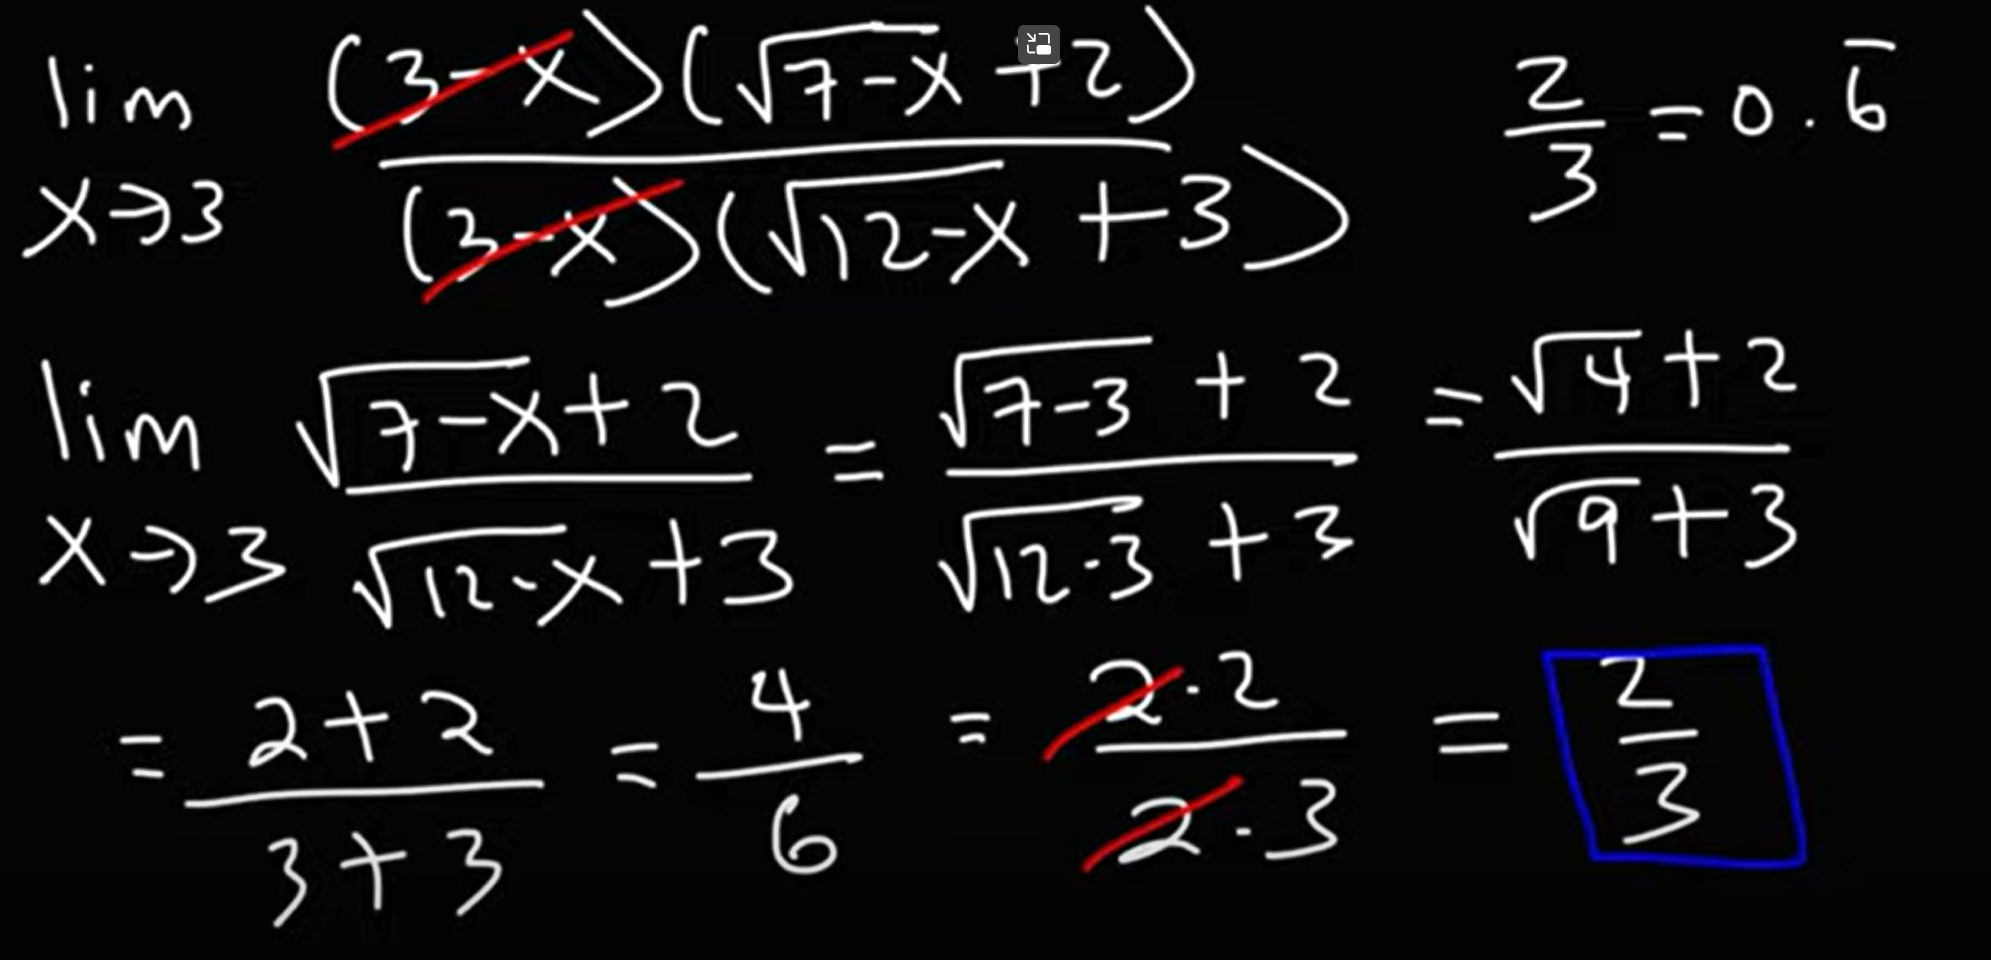 lim x→3 (3-x)(√7-x +2) / (3-x)(√12-x +3)
2/3 = 0.6̅
lim x→3 √7-x +2 / √12-x +3 = √7-3 + 2 / √12-3 + 3 = √4 + 2 / √9 + 3
= 2+2 / 3+3 = 4/6 = 2·2 / 2·3 = 2/3